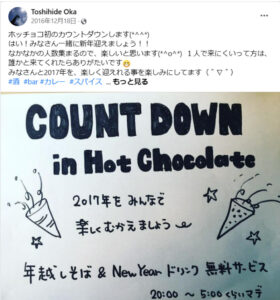 Toshihide Oka
2016年12月18日
ホッチョコ初のカウントダウンします(*^^*)
はい！みなさん一緒に新年迎えましょう！！
なかなかの人数集まるので、楽しいと思います(*^o^*) １人で来にくいって方は、
誰かと来てくれたらありがたいです😁
みなさんと2017年を、楽しく迎えれる事を楽しみにしてます（＾▽＾）
#酒 #bar #カレー #スパイス ... もっと見る
COUNT DOWN
in Hot Chocolate
2017年を みんなで
楽しくむかえましょう
年越しそば & New Year ドリンク 無料サービス
20:00 〜 5:00くらいマデ